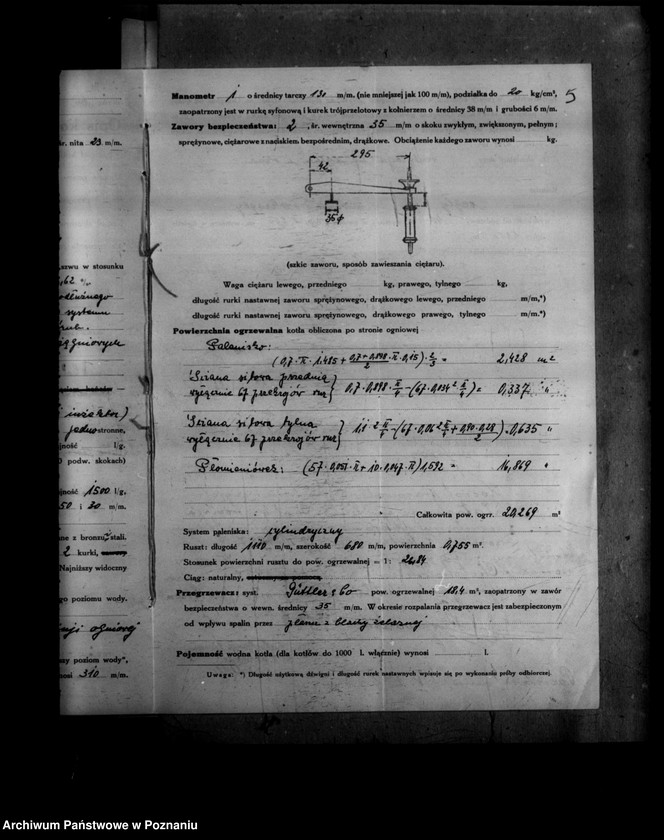 5
Manometr 1 o średnicy tarczy 130 m/m. (nie mniejszej jak 100 m/m), podziałka do 20 kg/cm²,
zaopatrzony jest w rurkę syfonową i kurek trójprzelotowy z kołnierzem o średnicy 38 m/m i grubości 6 m/m.
Zawory bezpieczeństwa: 2, śr. wewnętrzna 35 m/m o skoku zwykłym, zwiększonym, pełnym;
sprężynowe, ciężarowe z naciskiem bezpośrednim, drążkowe. Obciążenie każdego zaworu wynosi kg.
295
42
(szkic zaworu, sposób zawieszania ciężaru).
Waga ciężaru lewego, przedniego kg, prawego, tylnego kg,
długość rurki nastawnej zaworu sprężynowego, drążkowego lewego, przedniego m/m,*)
długość rurki nastawnej zaworu sprężynowego, drążkowego prawego, tylnego m/m.*)
Powierzchnia ogrzewalna kotła obliczona po stronie ogniowej
Palenisko:
2,428 m²
Ściana sitowa przednia
wyłącznie 67 przekrojów rur
0,337 "
Ściana sitowa tylna
wyłącznie 67 przekrojów rur
0,635 "
Płomieniówek: (57 · 0,051 · π + 10 · 0,047 · π) 1,592 = 16,869 "
Całkowita pow. ogrz. 20,269 m²
System paleniska: cylindryczny
Ruszt: długość 1110 m/m, szerokość 680 m/m, powierzchnia 0,755 m².
Stosunek powierzchni rusztu do pow. ogrzewalnej = 1: 26,84
Ciąg: naturalny,
Przegrzewacz: syst. Güttler & Co pow. ogrzewalnej 18,4 m², zaopatrzony w zawór
bezpieczeństwa o wewn. średnicy 35 m/m. W okresie rozpalania przegrzewacz jest zabezpieczony
od wpływu spalin przez z blachy żelaznej
Pojemność wodna kotła (dla kotłów do 1000 l. włącznie) wynosi l.
Uwaga: *) Długość użytkową dźwigni i długość rurek nastawnych wpisuje się po wykonaniu próby odbiorczej.
śr. nita 23 m/m.
szwu w stosunku
systemu
jednostronne,
l/g.
podw. skokach)
1500 l/g,
50 i 30 m/m.
z bronzu, stali.
2 kurki,
Najniższy widoczny
poziomu wody.
ogniowej
poziom wody",
310 m/m.
Archiwum Państwowe w Poznaniu